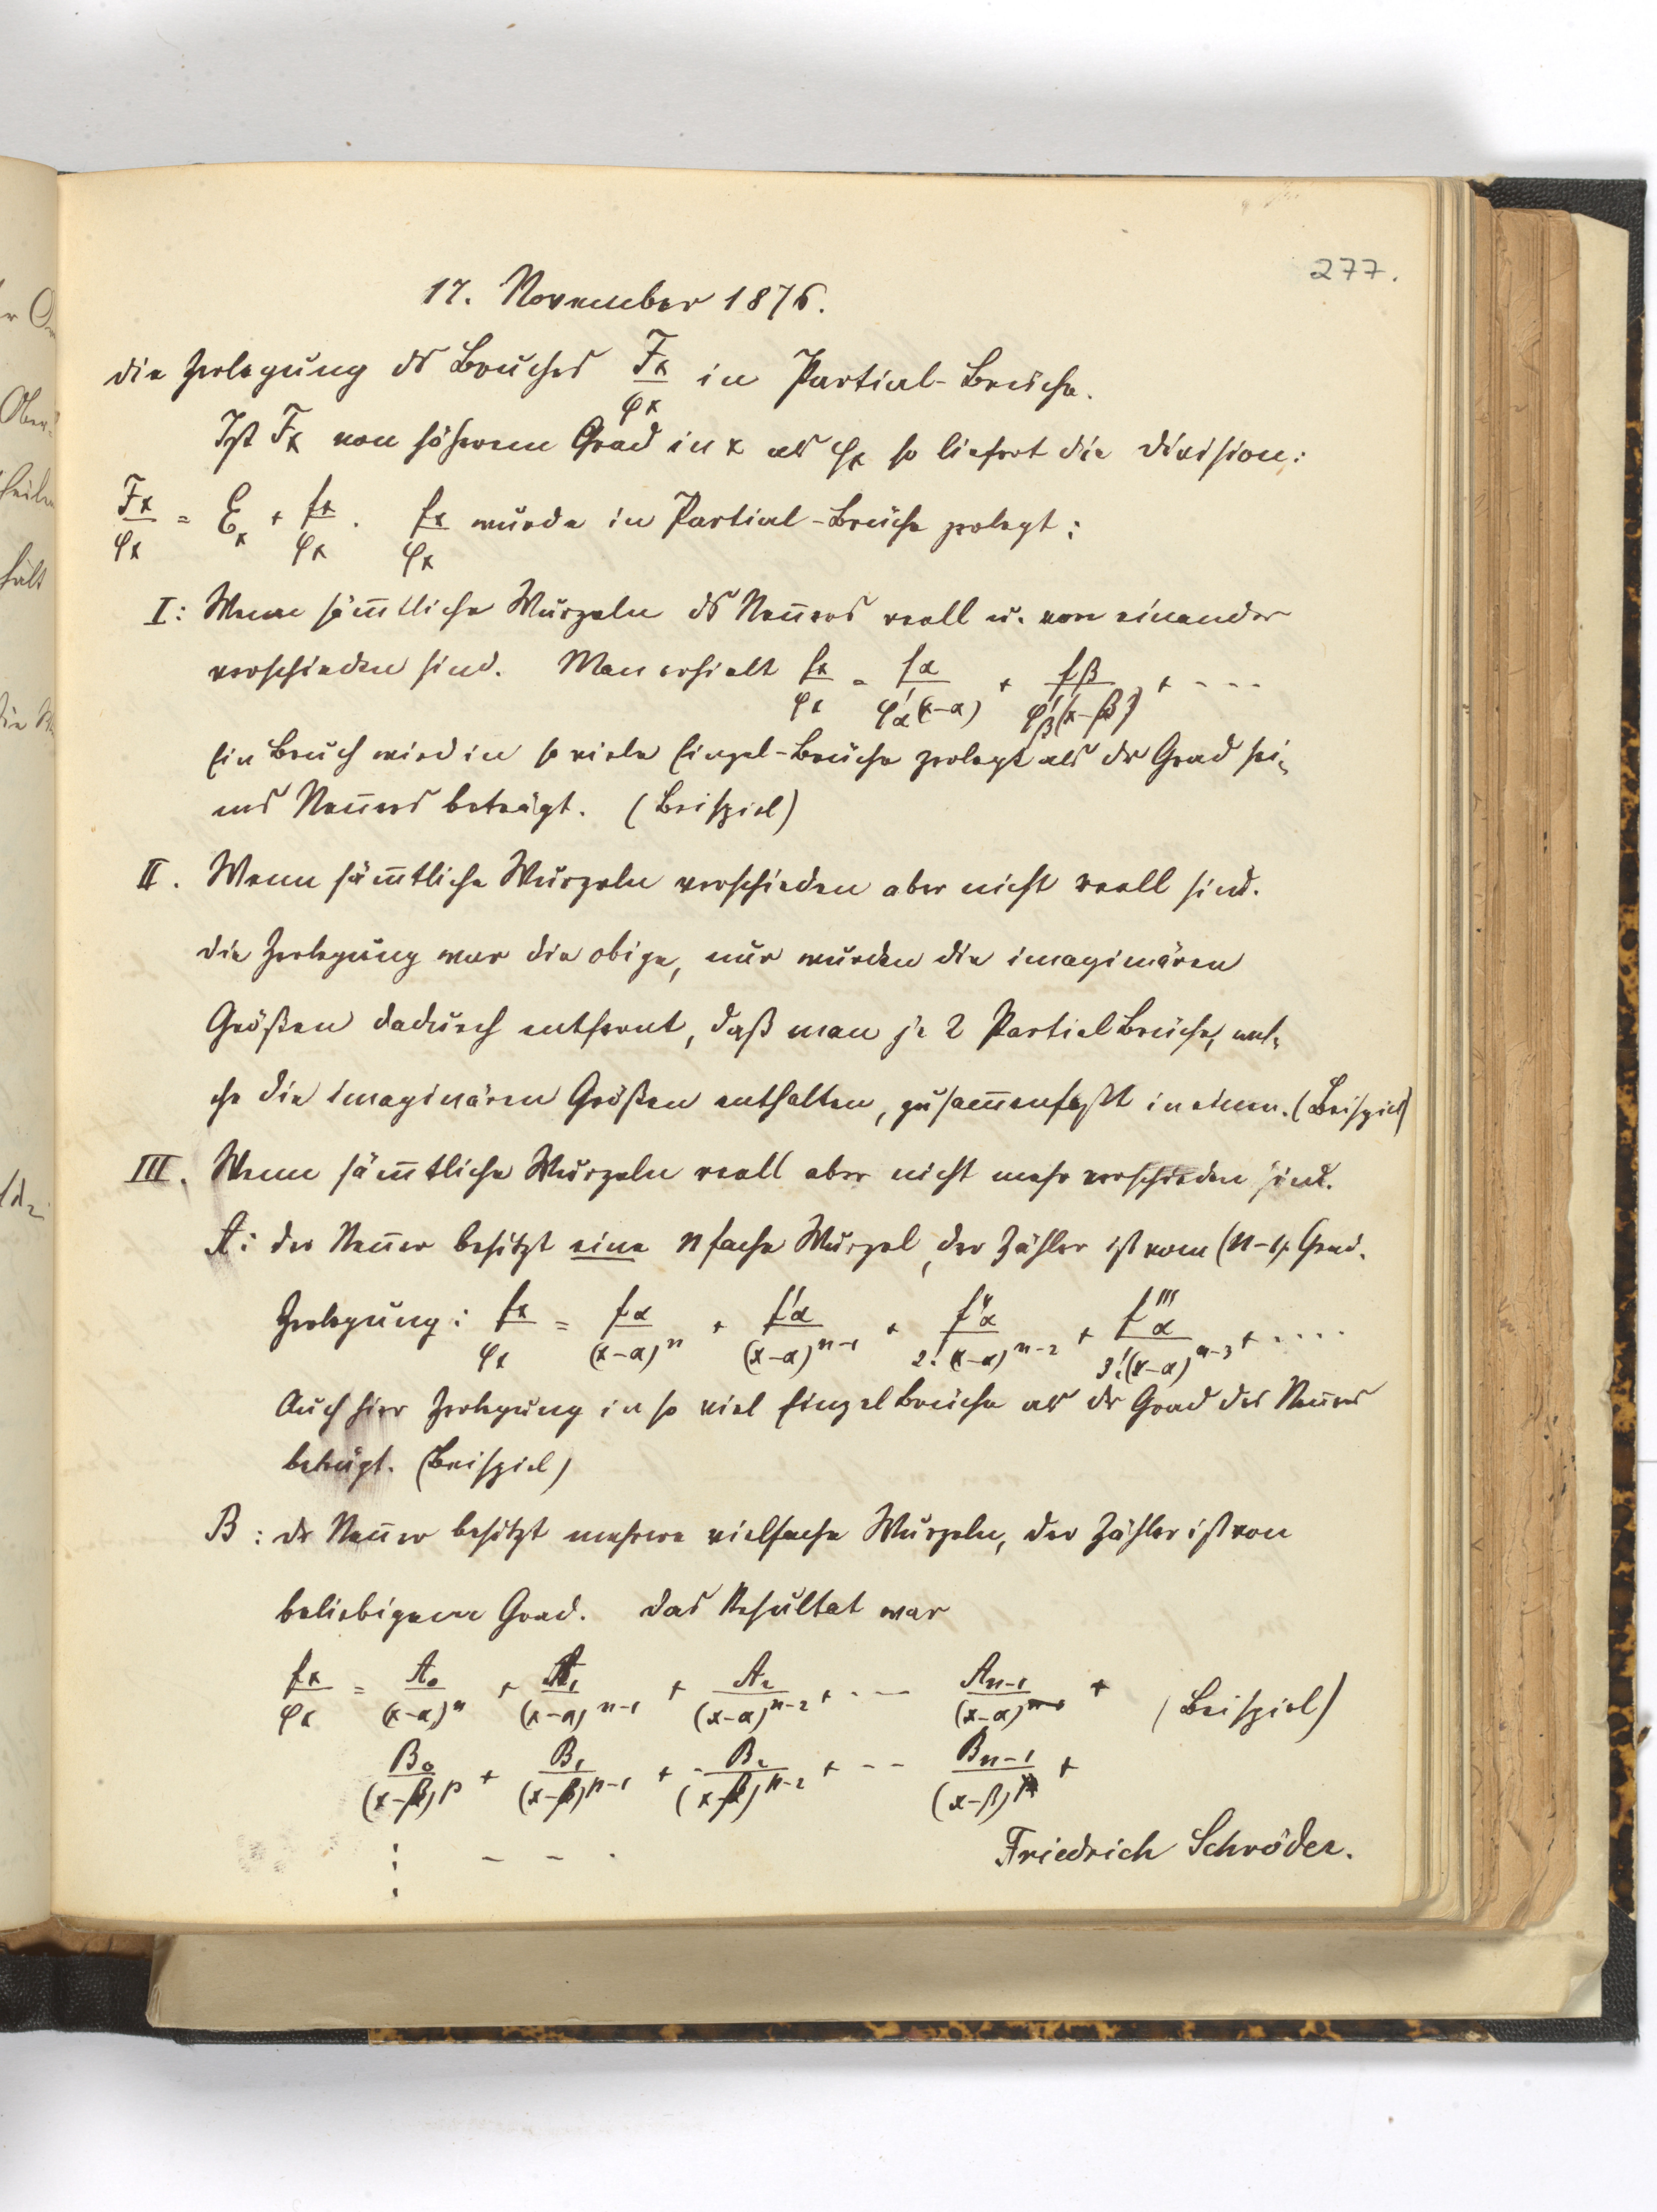 277.
17. November 1876.
Die Zerlegung ds Bruches Fx/φx in Partial-Brüche.
Ist Fx von höherem Grad in x als φx so liefert die Division:
Fx/φx = Ex + fx/φx. fx/φx wurde in Partial-Brüche zerlegt:
I: Wenn säm̄tliche Wurzeln ds Nen̄ers reell u. von einander
verschieden sind. Man erhielt fx/φx = fα/φ'α(x-α) + fβ/φ'β(x-β) + ----
Ein Bruch wird in so viele Einzel-Brüche zerlegt als dr Grad sei-
ns Nen̄ers beträgt. (Beispiel)
II. Wenn säm̄tliche Wurzeln verschieden aber nicht reell sind.
Die Zerlegung war die obige, nur wurden die imaginären
Größen dadurch entfernt, daß man je 2 Partialbrüche, wel-
che die imaginären Größen enthalten, zusam̄enfaßt in einen. (Beispiel)
III. Wenn säm̄tliche Wurzeln reell aber nicht mehr verschieden sind.
A: der Nen̄er besitzt eine n fache Wurzel, der Zähler ist vom (n-1). Grad.
Zerlegung: fx/φx = fα/(x-α)^n + f'α/(x-α)^n-1 + f''α/2!(x-α)^n-2 + f'''α/3!(x-α)^n-3 + ....
Auch hier Zerlegung in so viel Einzelbrüche als dr Grad des Nen̄ers
beträgt. (Beispiel)
B: dr Nen̄er besitzt mehrere vielfache Wurzeln, der Zähler ist von
beliebigem Grad. Das Resultat war
fx/φx = A₀/(x-α)^n + A₁/(x-α)^n-1 + A₂/(x-α)^n-2 + --- An-1/(x-α) + (Beispiel)
B₀/(x-β)^p + B₁/(x-β)^p-1 + B₂/(x-β)^p-2 + -- Bn-1/(x-β) +
Friedrich Schröder.